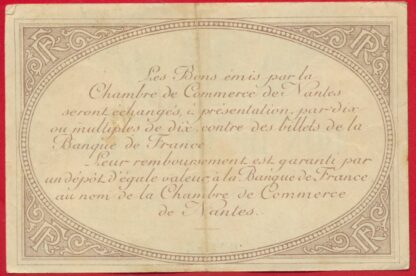 RF
RF
Les Bons émis par la
Chambre de Commerce de Nantes
seront échangés, à présentation, par dix
ou multiples de dix, contre des billets de la
Banque de France
Leur remboursement est garanti par
un dépôt d'égale valeur à la Banque de France
au nom de la Chambre de Commerce
de Nantes.
RF
RF